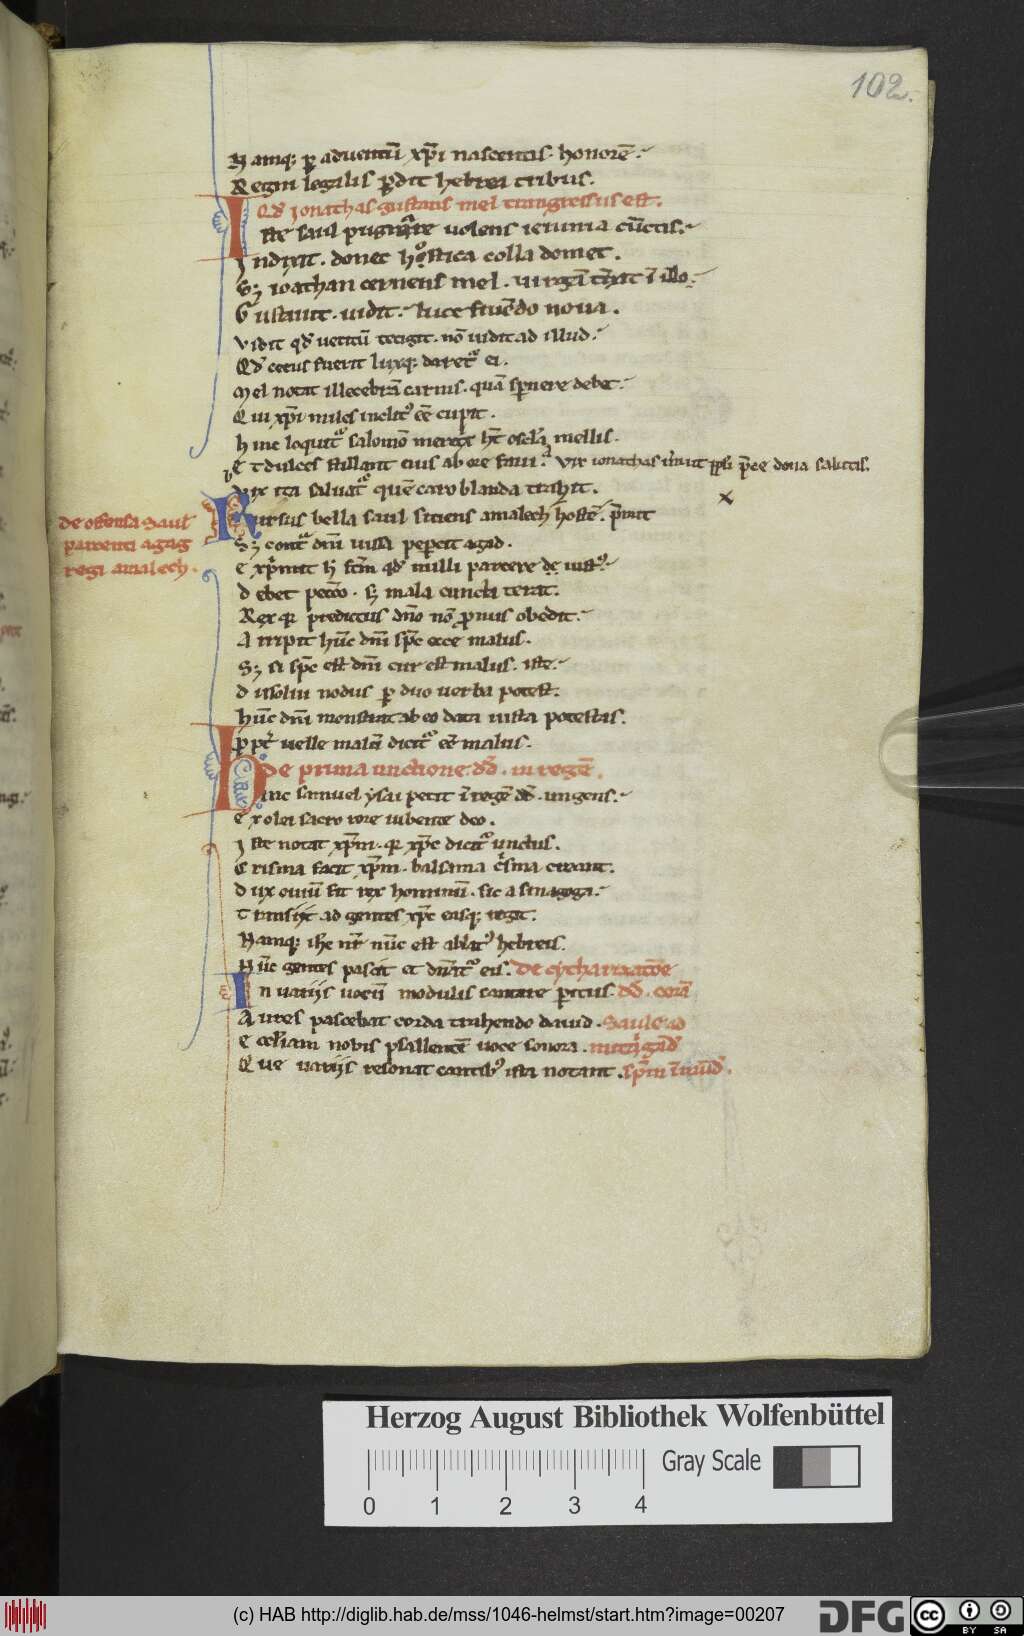 102.
Namq; p aduentū xp̄i nascentis honorē.
Regni legalis p̄dit hebrea tribus.
Qd̄ ionathas gustans mel transgressus est.
Iste saul pugnare uolens ieiunia cūctis.
Indixit. donec hostica colla domet.
Sꝫ ioathan cernens mel. uirgē illo.
Gustauit. uidit. luce noua.
Vidit qd̄ uetitū tetigit. nō uidit ad illud.
Qd̄ cecus fuerit luxq; daret᷑ ei.
Mel notat illecebrā carnis. quā sp̄nere debet.
Qui xp̄i miles inclit᷒ eē cupit.
hinc loquit᷑ salomō mellis.
Et dulces stillant eius ab ore faui. Vix ionathas dona salutis.
Vix ita saluat᷑ quē caro blanda trahit.
de offensa Saul
parcenti agag
regi amalech.
Rursus bella saul sitiens amalech hostē. p̄mit
Sꝫ cont᷑ dn̄i iussa pepercit agad.
Exp̄mit h̄ qd̄ nulli parcere de iust᷒
debet pecc̄o. sꝫ mala cuncta terat.
Rex qr predictus dn̄o nō ꝓnus obedit.
Arripit hūc dn̄i sp̄c ecce malus.
Sꝫ si sp̄c est dn̄i cur est malus. iste.
dissolui nodus p duo uerba potest.
hūc dn̄i monstrat ab eo data iusta potestas.
Ppt̄ uelle malū dicit᷑ malus.
de prima unctione dd̄. in regē.
Hinc samuel ysai petit ī regē dd̄. ungens.
Ex olei sacro rore iubente deo.
Iste notat xp̄m. qr xp̄c dicit᷑ unctus.
Crisma facit xp̄m. balsama
dux ouiū fit rex hominū. sic a sinagoga.
transiit ad gentes xp̄c easq; regit.
Namq; ih̄c nr̄ nūc est ablat᷒ hebreis.
Nūc gentes pascit et eis. De cytharizatōe
In uariis uocū modulis cantare peritus. dd̄. corā
Aures pascebat corda trahendo dauid. Saule ad
Ecclīam nobis psallentē uoce sonora. mitigād̄
Que uariis resonat cantib᷒ ista notant. sp̄m
Herzog August Bibliothek Wolfenbüttel
Gray Scale
0 1 2 3 4
(c) HAB http://diglib.hab.de/mss/1046-helmst/start.htm?image=00207
DFG
cc BY SA